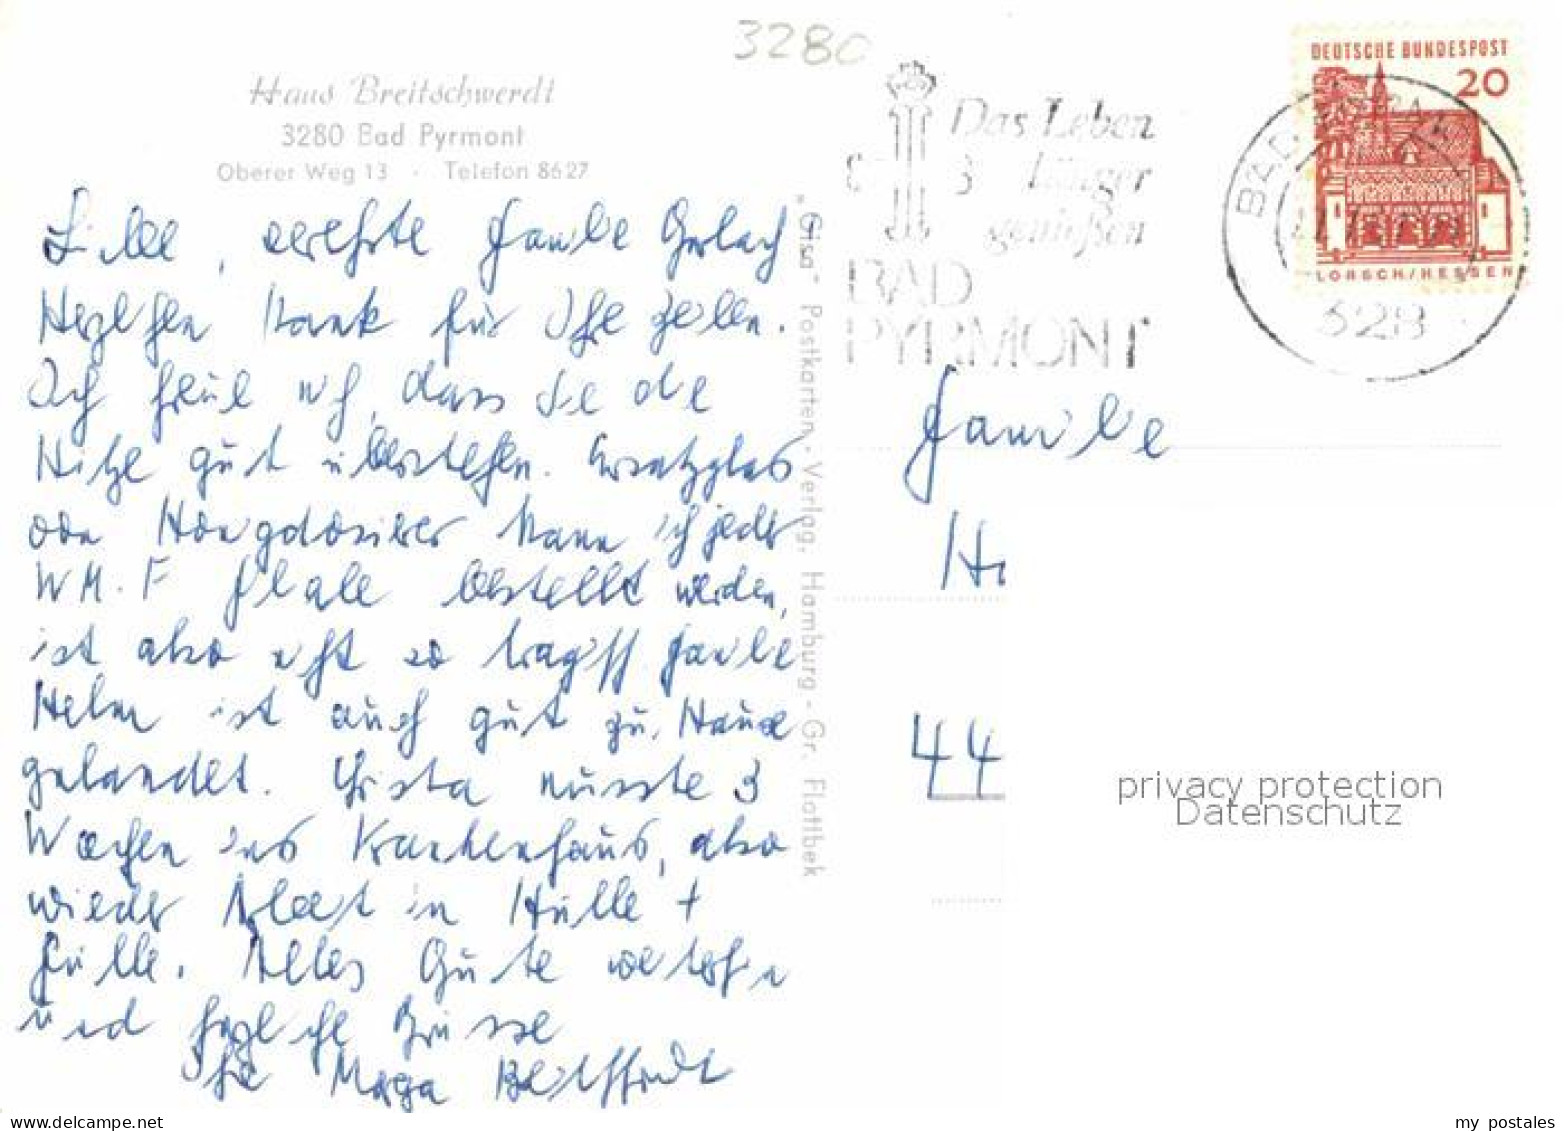 3280
Haus Breitschwerdt
3280 Bad Pyrmont
Oberer Weg 13 · Telefon 8627
Das Leben
länger
genießen
BAD
PYRMONT
DEUTSCHE BUNDESPOST
20
LORSCH/HESSEN
BAD PYRMONT
328
Liebe, verehrte Familie Gerlach
Herzlichen Dank für Ihre Zeilen.
Ich freue mich, dass Sie die
Hitze gut überstehen. Ersatzglas
von Honigdosierer kann ich jeder
WM.F Filiale bestellt werden,
ist also nicht so tragisch Familie
Helm ist auch gut zu Hause
gelandet. Christa musste 3
Wochen ins Krankenhaus, also
wieder Arbeit in Hülle +
Fülle. Alles Gute weiterhin
und herzliche Grüsse
Ihre Breitschwerdt
"Gisa" Postkarten-Verlag, Hamburg - Gr. Flottbek
Familie
44
privacy protection
Datenschutz
delcampe.net
my_postales